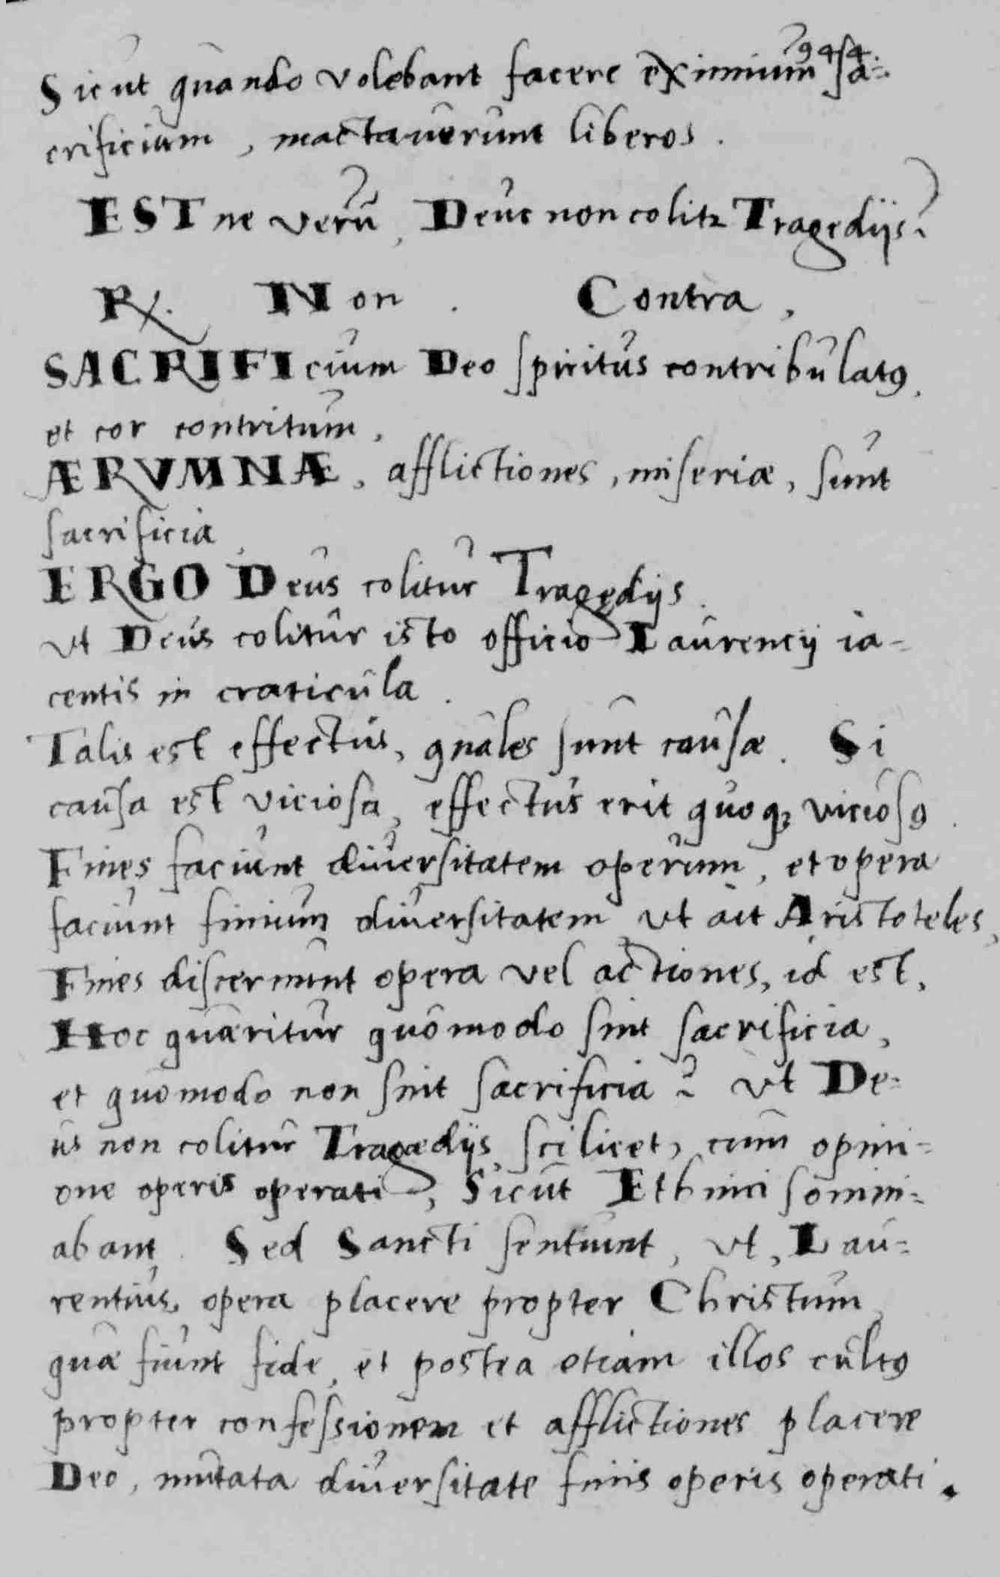 9454.
Sicut quando volebant facere eximium sa=
crificium, mactaverunt liberos.
ESTne verũ, Deus non colitꝛ Tragediis?
℞. Non. Contra,
SACRIFIcium Deo spiritus contribulatꝰ,
et cor contritum.
ÆRVMNÆ, afflictiones, miseriæ, sunt
sacrificia.
ERGO Deus colitur Tragędijs.
Vt Deus colitur isto officio Laurencij ia=
centis in craticula.
Talis est effectus, quales sunt causæ. Si
causa est viciosa, effectus erit quoqꝫ viciosꝰ.
Fines faciunt diversitatem operum, et opera
faciunt finium diversitatem, vt ait Aristoteles,
Fines discernunt opera vel actiones, id est,
Hoc quæritur quomodo sint sacrificia,
et quomodo non sint sacrificia? Vt De=
us non colitur Tragædijs, scilicet, cum opini=
one operis operati, Sicut Ethnici somni=
abant. Sed Sancti sentiunt, vt, Lau=
rentius, opera placere propter Christum,
quæ fiunt fide, et postea etiam illos cultꝰ
propter confessionem et afflictiones placere
Deo, mutata diversitate finis operis operati.